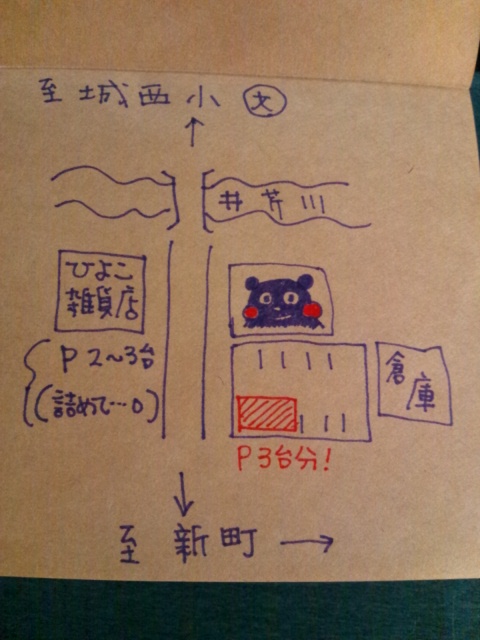 至 城西小 文
井芹川
ひよこ
雑貨店
P 2〜3台
(詰めて…0)
倉庫
P3台分!
至 新町 →